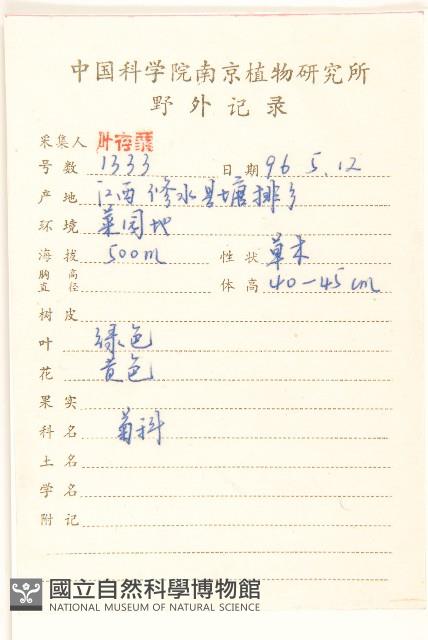 中国科学院南京植物研究所
野外记录
采集人 叶存粟
号数 1333 日期 96.5.12
产地 江西修水县塘排乡
环境 菜园地
海拔 500m 性状 草本
胸高直径 体高 40-45cm
树皮
叶 绿色
花 黄色
果实
科名 菊科
土名
学名
附记
國立自然科學博物館
NATIONAL MUSEUM OF NATURAL SCIENCE